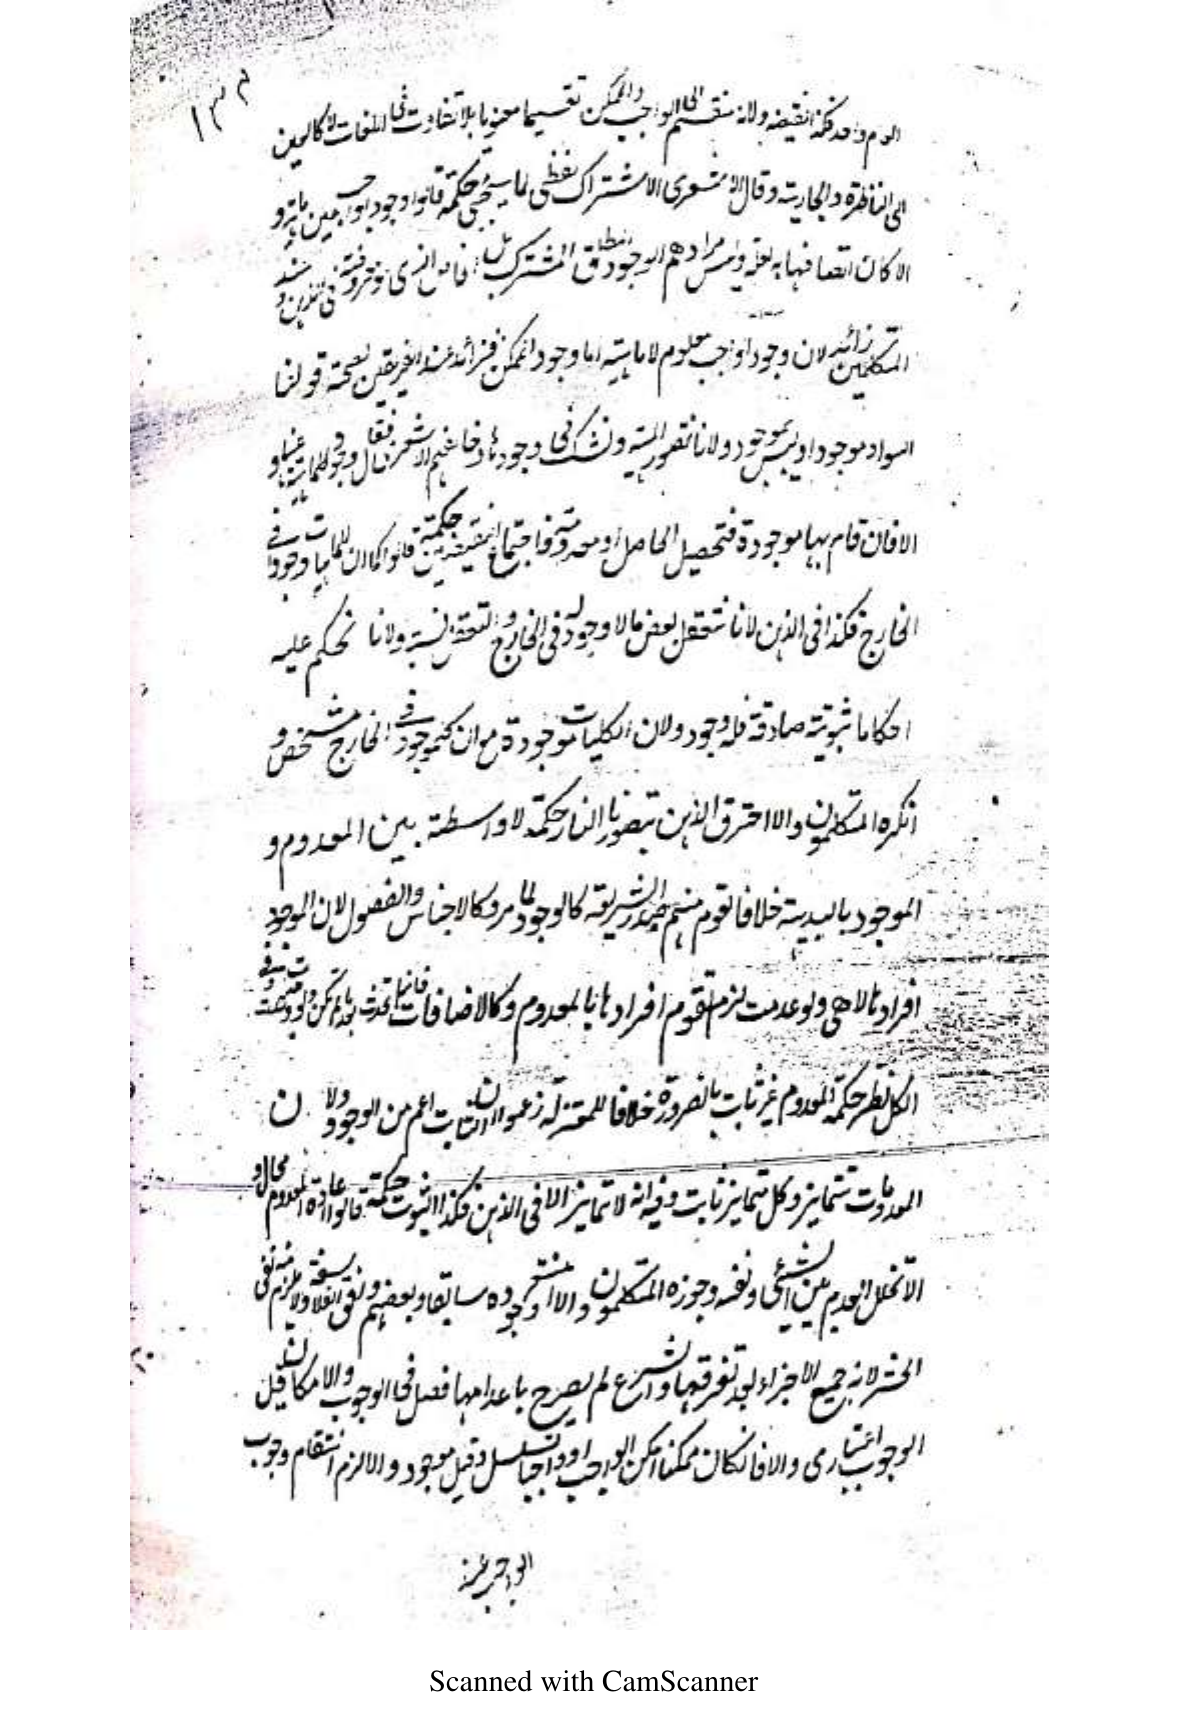 ١٣٢
العدم واحد فكذا نقيضه ولانه منقسم الى الواجب والممكن تقسيما معنويا بلا تفاوت فى اللغات لا كالعين
الى الناظرة والجارية وقال الاشعرى الاشتراك لفظى لما سيجئ حكمة قالوا وجود الواجب عين ماهيته و
الا كان اتصافها به لعلة وليس مرادهم الوجود المطلق المشترك بل الخاص الذى
المتكلمين زائد لان وجود الواجب معلوم لا ماهيته اما وجود الممكن فزائد عند الفريقين لصحة قولنا
السواد موجود او ليس بموجود ولانا نتصور المهية ونشك فى وجودها خلافا للاشعرى فقال وجود الماهية عينها و
الا فان قام بها موجودة فتحصيل الحاصل او معدومة فاجتماع النقيضين حكمة قالوا كما ان للماهيات وجودا فى
الخارج فكذا فى الذهن لانا نتعقل بعض ما لا وجود له فى الخارج والتعقل نسبة ولانا نحكم عليه
احكاما ثبوتية صادقة فله وجود ولان الكليات موجودة مع ان كل موجود فى الخارج مشخص و
انكره المتكلمون والا احترق الذهن بتصور النار حكمة لا واسطة بين المعدوم و
الموجود بالبديهة خلافا لقوم منهم صدر الشريعة كالوجود لما مر وكالاجناس والفصول لان الموجود
افرادها لا هى ولو عدمت لزم تقوم افرادها بالمعدوم وكالاضافات فانها تحدث بعد ما لم تكن
الكل نظر حكمة المعدوم غير ثابت بالضرورة خلافا للمعتزلة زعموا ان الثابت اعم من الوجود ولان
المعدومات تتمايز وكل متمايز ثابت وفيه انه لا تمايز الا فى الذهن فكذا الثبوت حكمة قالوا اعادة المعدوم محال و
الا تخلل العدم بين الشئ ونفسه وجوزه المتكلمون والا امتنع وجوده سابقا وبعضهم وفق الفلاسفة ولا يلزم منه نفى
الحشر لانه جمع الاجزاء بعد تفرقها والشرع لم يصرح باعدامها فصل فى الوجوب والامكان قيل
الوجوب اعتبارى والا فان كان ممكنا امكن الواجب او واجبا تسلسل وقيل موجود والا لزم انعدام وجوب
الواجب عند
Scanned with CamScanner